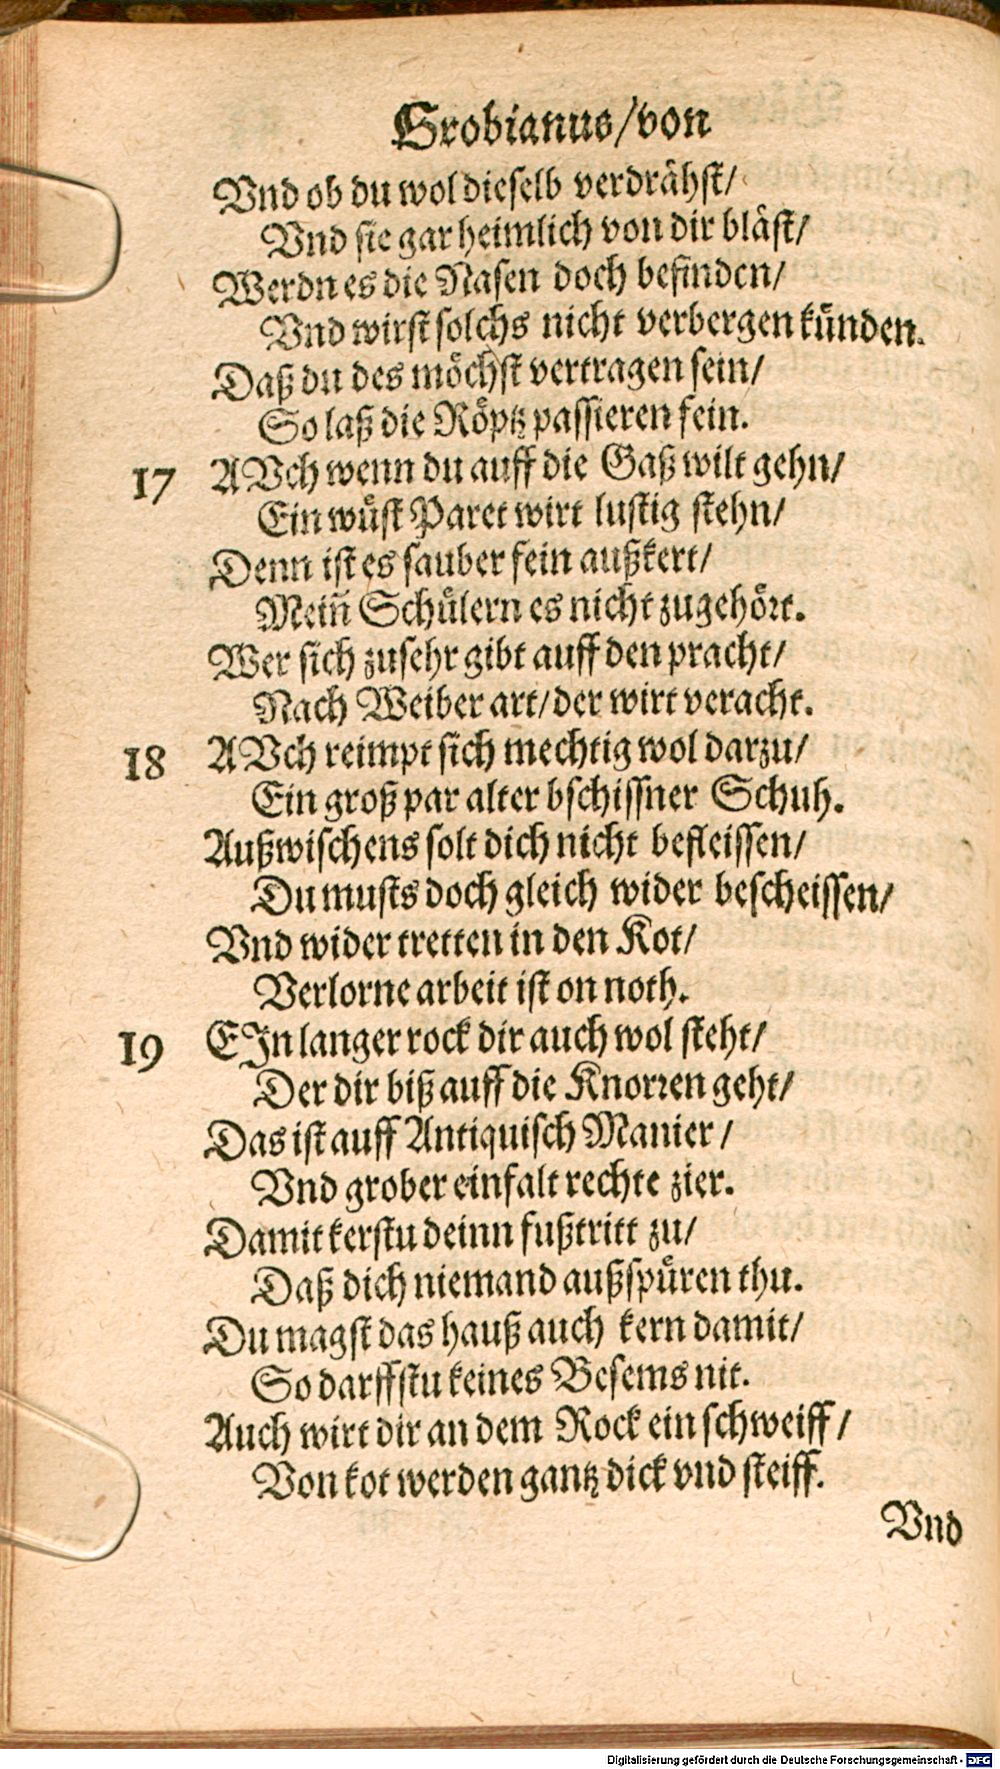 Grobianus/von
Vnd ob du wol dieselb verdrähst/
Vnd sie gar heimlich von dir bläst/
Werdn es die Nasen doch befinden/
Vnd wirst solchs nicht verbergen künden.
Daß du des möchst vertragen sein/
So laß die Röptz passieren fein.
17 AVch wenn du auff die Gaß wilt gehn/
Ein wüst Paret wirt lustig stehn/
Denn ist es sauber fein außkert/
Mein̄ Schülern es nicht zugehört.
Wer sich zusehr gibt auff den pracht/
Nach Weiber art/der wirt veracht.
18 AVch reimpt sich mechtig wol darzu/
Ein groß par alter bschissner Schuh.
Außwischens solt dich nicht befleissen/
Du musts doch gleich wider bescheissen/
Vnd wider tretten in den Kot/
Verlorne arbeit ist on noth.
19 EJn langer rock dir auch wol steht/
Der dir biß auff die Knorren geht/
Das ist auff Antiquisch Manier/
Vnd grober einfalt rechte zier.
Damit kerstu deinn fußtritt zu/
Daß dich niemand außspüren thu.
Du magst das hauß auch kern damit/
So darffstu keines Besems nit.
Auch wirt dir an dem Rock ein schweiff/
Von kot werden gantz dick vnd steiff.
Vnd
Digitalisierung gefördert durch die Deutsche Forschungsgemeinschaft - DFG